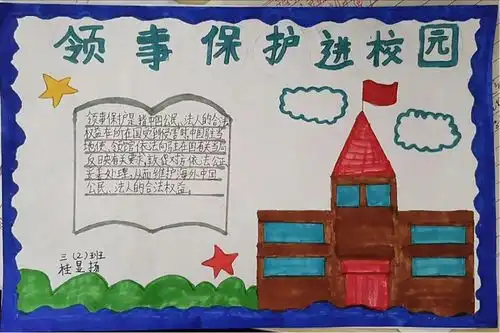 领事保护进校园
领事保护是指中国公民、法人的合法
权益在所在国受到侵害时中国驻当
地使、领馆依法向驻在国有关当局
反映有关要求,敦促对方依法公正
妥善处理,从而维护海外中国
公民、法人的合法权益。
三(2)班
桂显扬